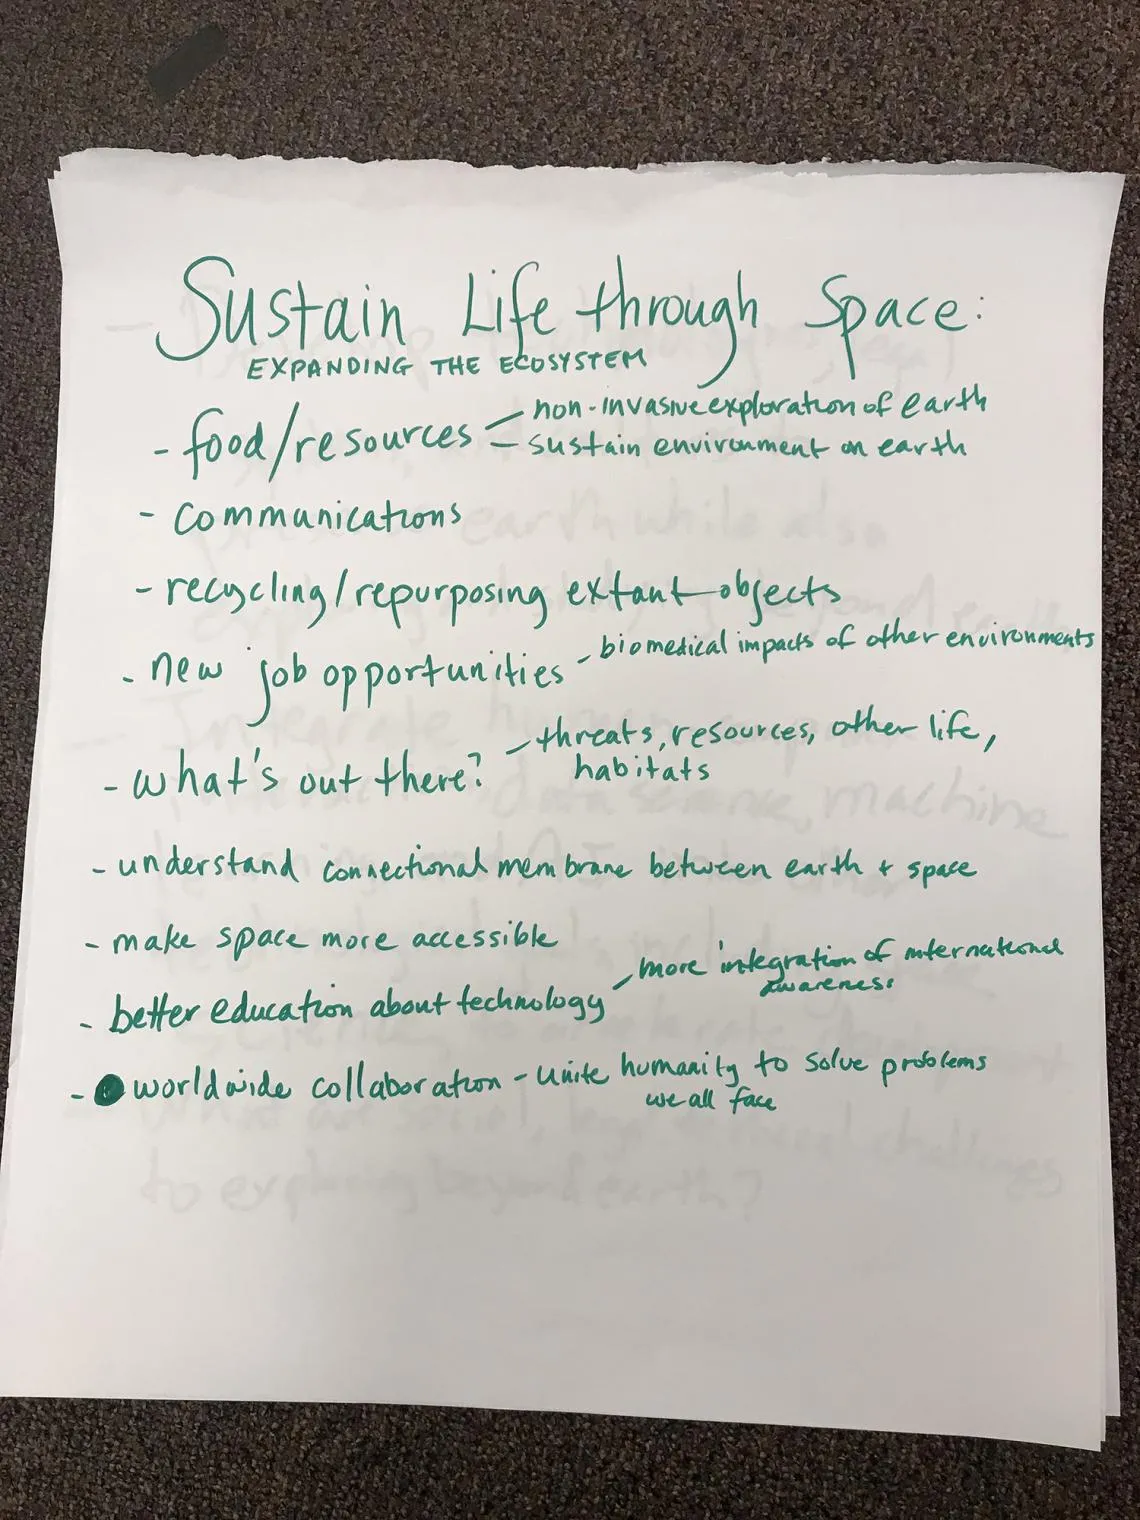 Sustain Life through Space:
EXPANDING THE ECOSYSTEM
- food/resources - non-invasive exploration of earth
- sustain environment on earth
- communications
- recycling/repurposing extant objects
- new job opportunities - biomedical impacts of other environments
- what's out there? - threats, resources, other life,
habitats
- understand connectional membrane between earth + space
- make space more accessible
- better education about technology - more integration of international
awareness
- worldwide collaboration - unite humanity to solve problems
we all face